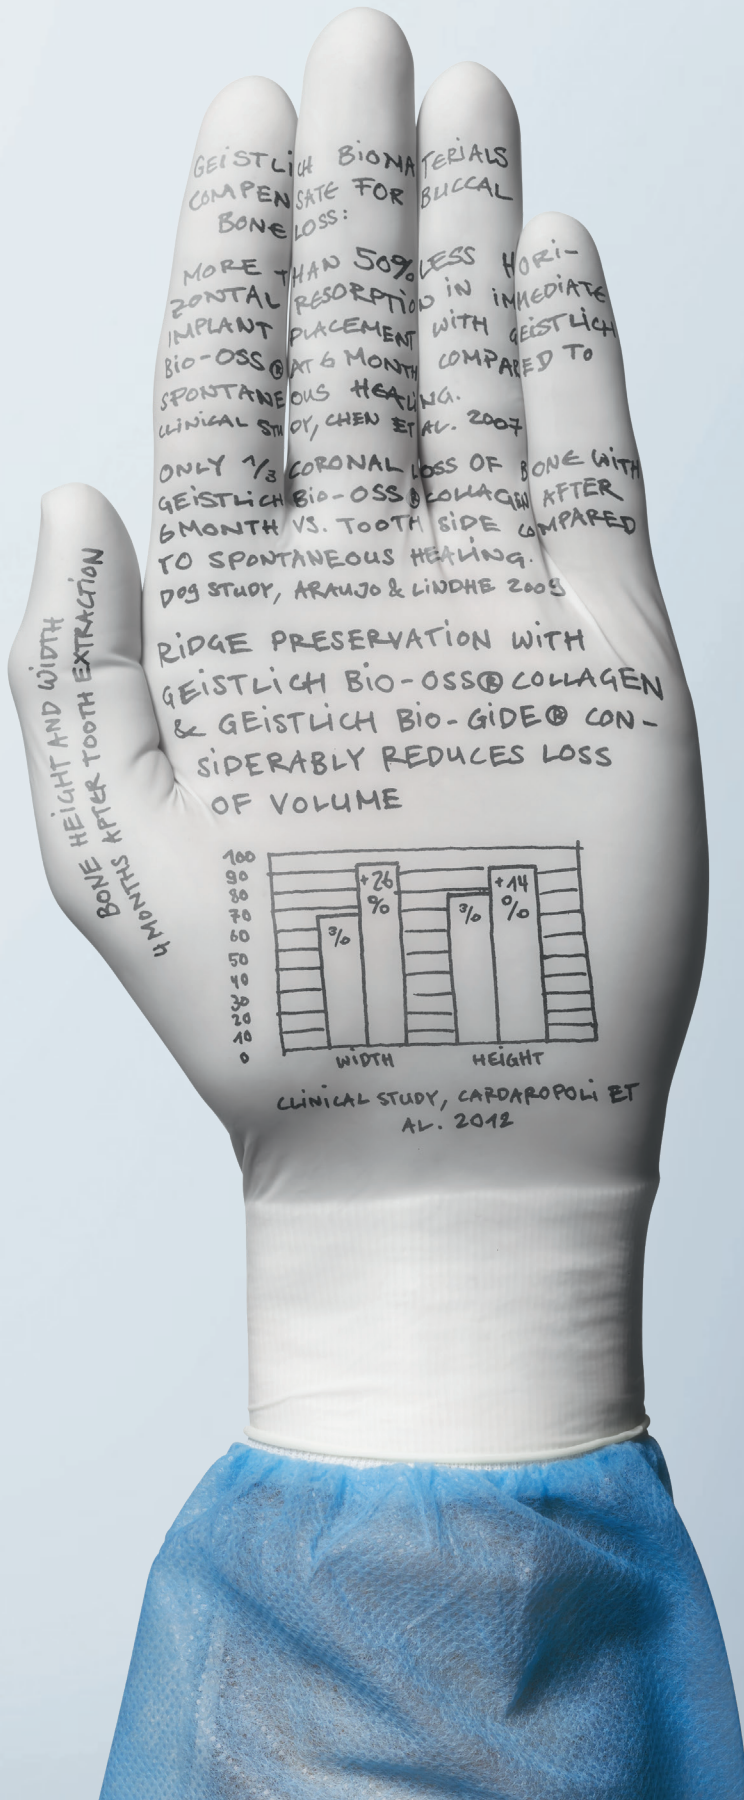 GEiSTLiCH BiOMATERiALS
COMPENSATE FOR BUCCAL
BONE LOSS:
MORE THAN 50% LESS HORi-
ZONTAL RESORPTiON iN iMMEDiATE
iMPLANT PLACEMENT WiTH GEiSTLiCH
Bio-OSS® AT 6 MONTH COMPARED TO
SPONTANEOUS HEALiNG.
CLiNiCAL STUDY, CHEN ET AL. 2007
ONLY 1/3 CORONAL LOSS OF BONE WiTH
GEiSTLiCH Bio-OSS® COLLAGEN AFTER
6 MONTH VS. TOOTH SiDE COMPARED
TO SPONTANEOUS HEALiNG.
DOg STUDY, ARAUJO & LiNDHE 2009
RiDGE PRESERVATiON WiTH
GEiSTLiCH Bio-OSS® COLLAGEN
& GEiSTLiCH Bio-GiDE® CON-
SiDERABLY REDUCES LOSS
OF VOLUME
BONE HEiGHT AND WiDTH
AFTER TOOTH EXTRACTiON
4 MONTHS
100
90
80
70
60
50
40
30
20
10
0
%
+26
%
%
+14
%
WiDTH HEiGHT
CLiNiCAL STUDY, CARDAROPOLi ET
AL. 2012